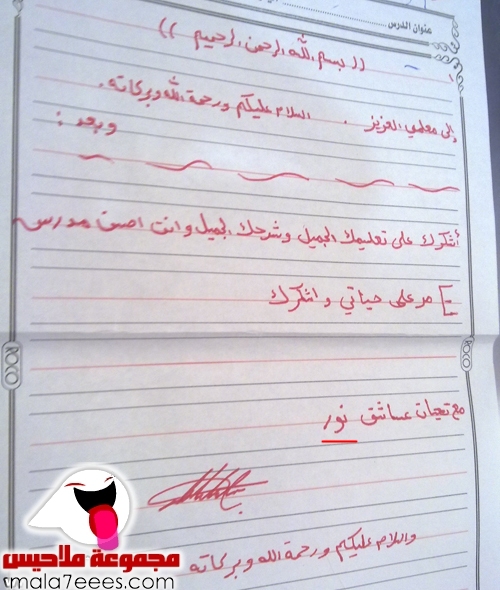 عنوان الدرس
(( بسم الله الرحمن الرحيم ))
إلى معلمي العزيز . السلام عليكم ورحمة الله وبركاته .
وبعد :
أشكرك على تعليمك الجميل وشرحك الجميل وانت احسن مدرس
مر على حياتي واشكرك
مع تحيات عساشق نور
والسلام عليكم ورحمة الله وبركاته
ROCO
ROCO
مجموعة ملاحيس
mala7eees.com